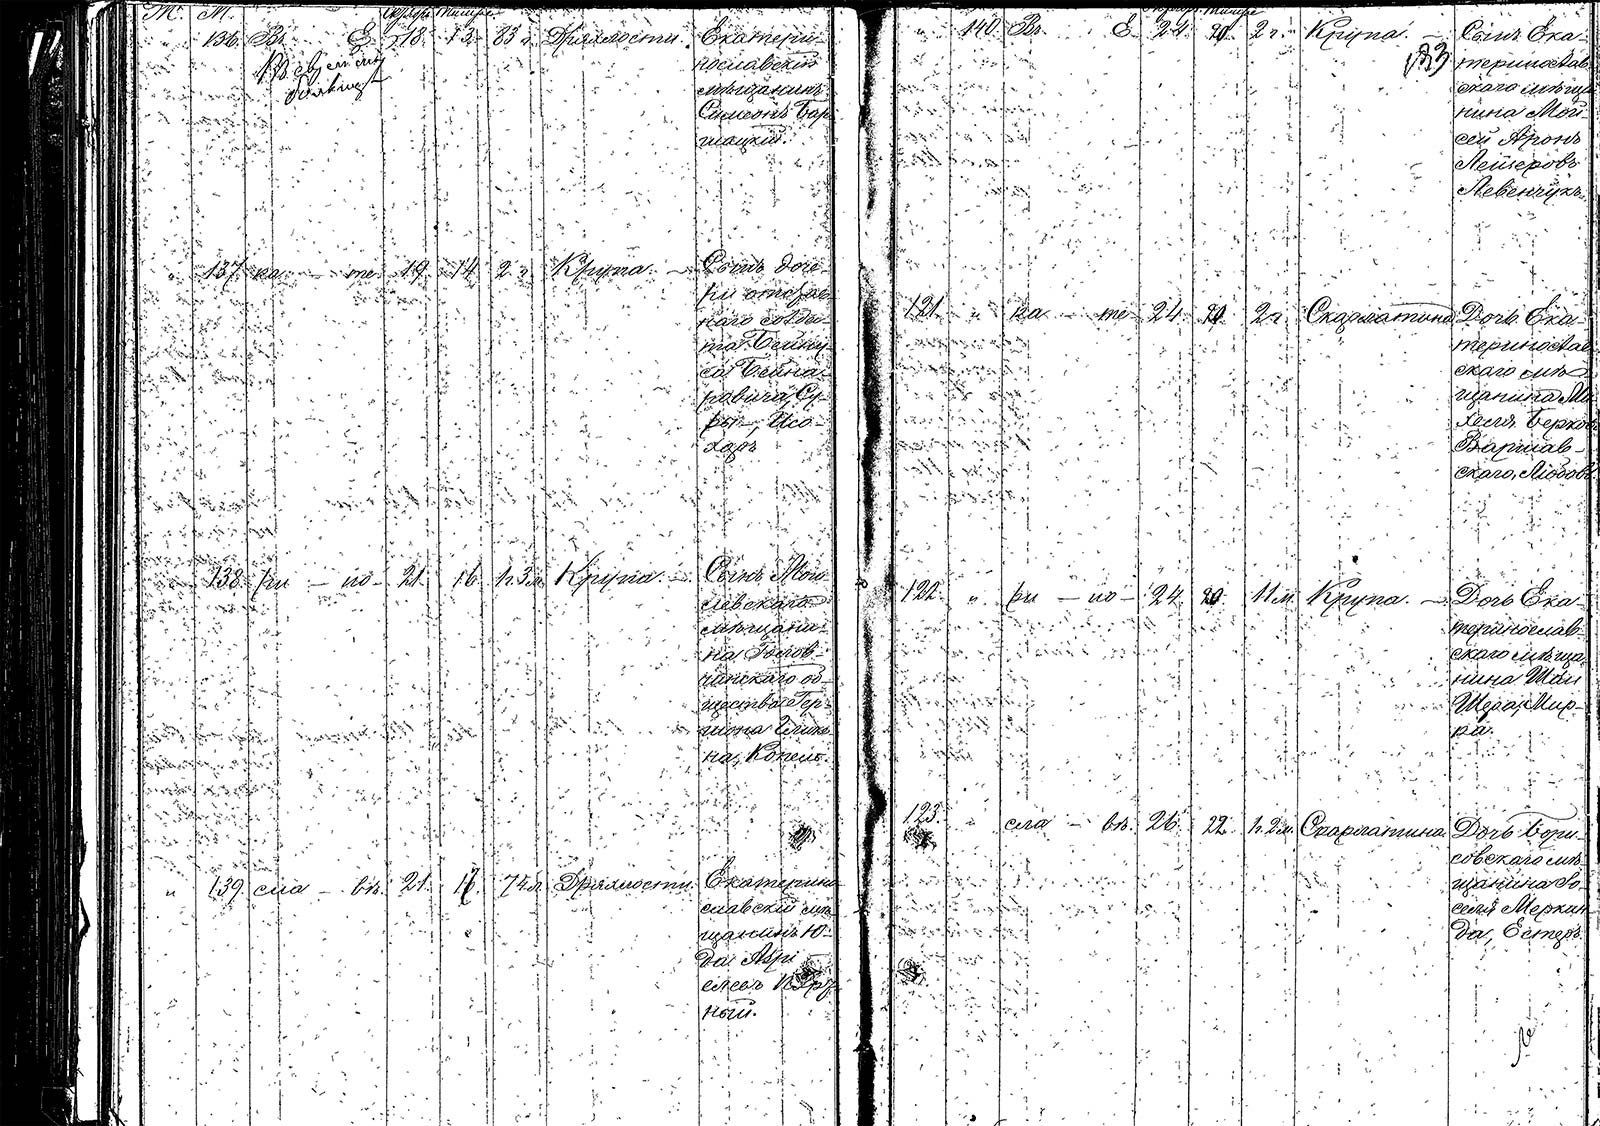 Ж. М.
136. Въ Е 18. 12. 83 г. Дряхлости. Екатери-
нославскій
мѣщанинъ
Симеонъ Бар
шацкій.
" 137 ка - те 19. 14. 2 г. Крупа. - Сынъ доче-
ри отстав-
наго солда-
та
ровича, Су-
ры -, Исо-
харъ
" 138 ри - но - 21. 16. 1 г. 3 м. Крупа. - Сынъ Мои-
левскаго
мѣщани-
на Голов-
чинскаго об-
щества Гер-
шона
на, Копель.
" 139. сла - вѣ. 21. 74 л. Дряхлости. Екатерино-
славскій мѣ-
щанинъ Ю-
да
ный.
" 140. Въ Е 24. 20. 2 г. Крупа. - Сынъ Ека-
133 теринослав
скаго мѣща
нина Мой-
сей Аронъ
Лейзеровъ
Левенчукъ.
121. " ка - те - 24. 20. 2 г. Скарлатина Дочь Ека-
теринослав
скаго мѣ-
щанина Ми
хеля Берков
Варшав-
скаго, Любовь.
122. " ри - но - 24. 20. 11 м. Крупа. - Дочь Ека-
теринослав-
скаго мѣща
нина Шаи
Шера, Мир-
ра.
123. " сла - вѣ. 26. 22. 1 г. 2 м. Скарлатина. Дочь Бори-
совскаго мѣ-
щанина Іо-
селя Меркин
да, Естеръ.